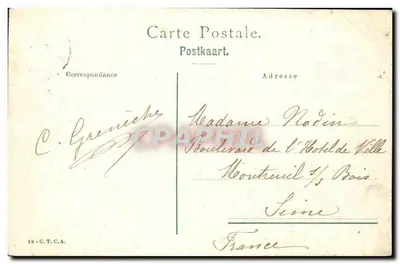 Carte Postale.
Postkaart.
Correspondance
Adresse
C. Grenèche
Madame Nodin
Boulevard de l'Hotel de Ville
Montreuil s/s Bois
Seine
France
CPAPHIL.COM
19 - C. T. C. A.